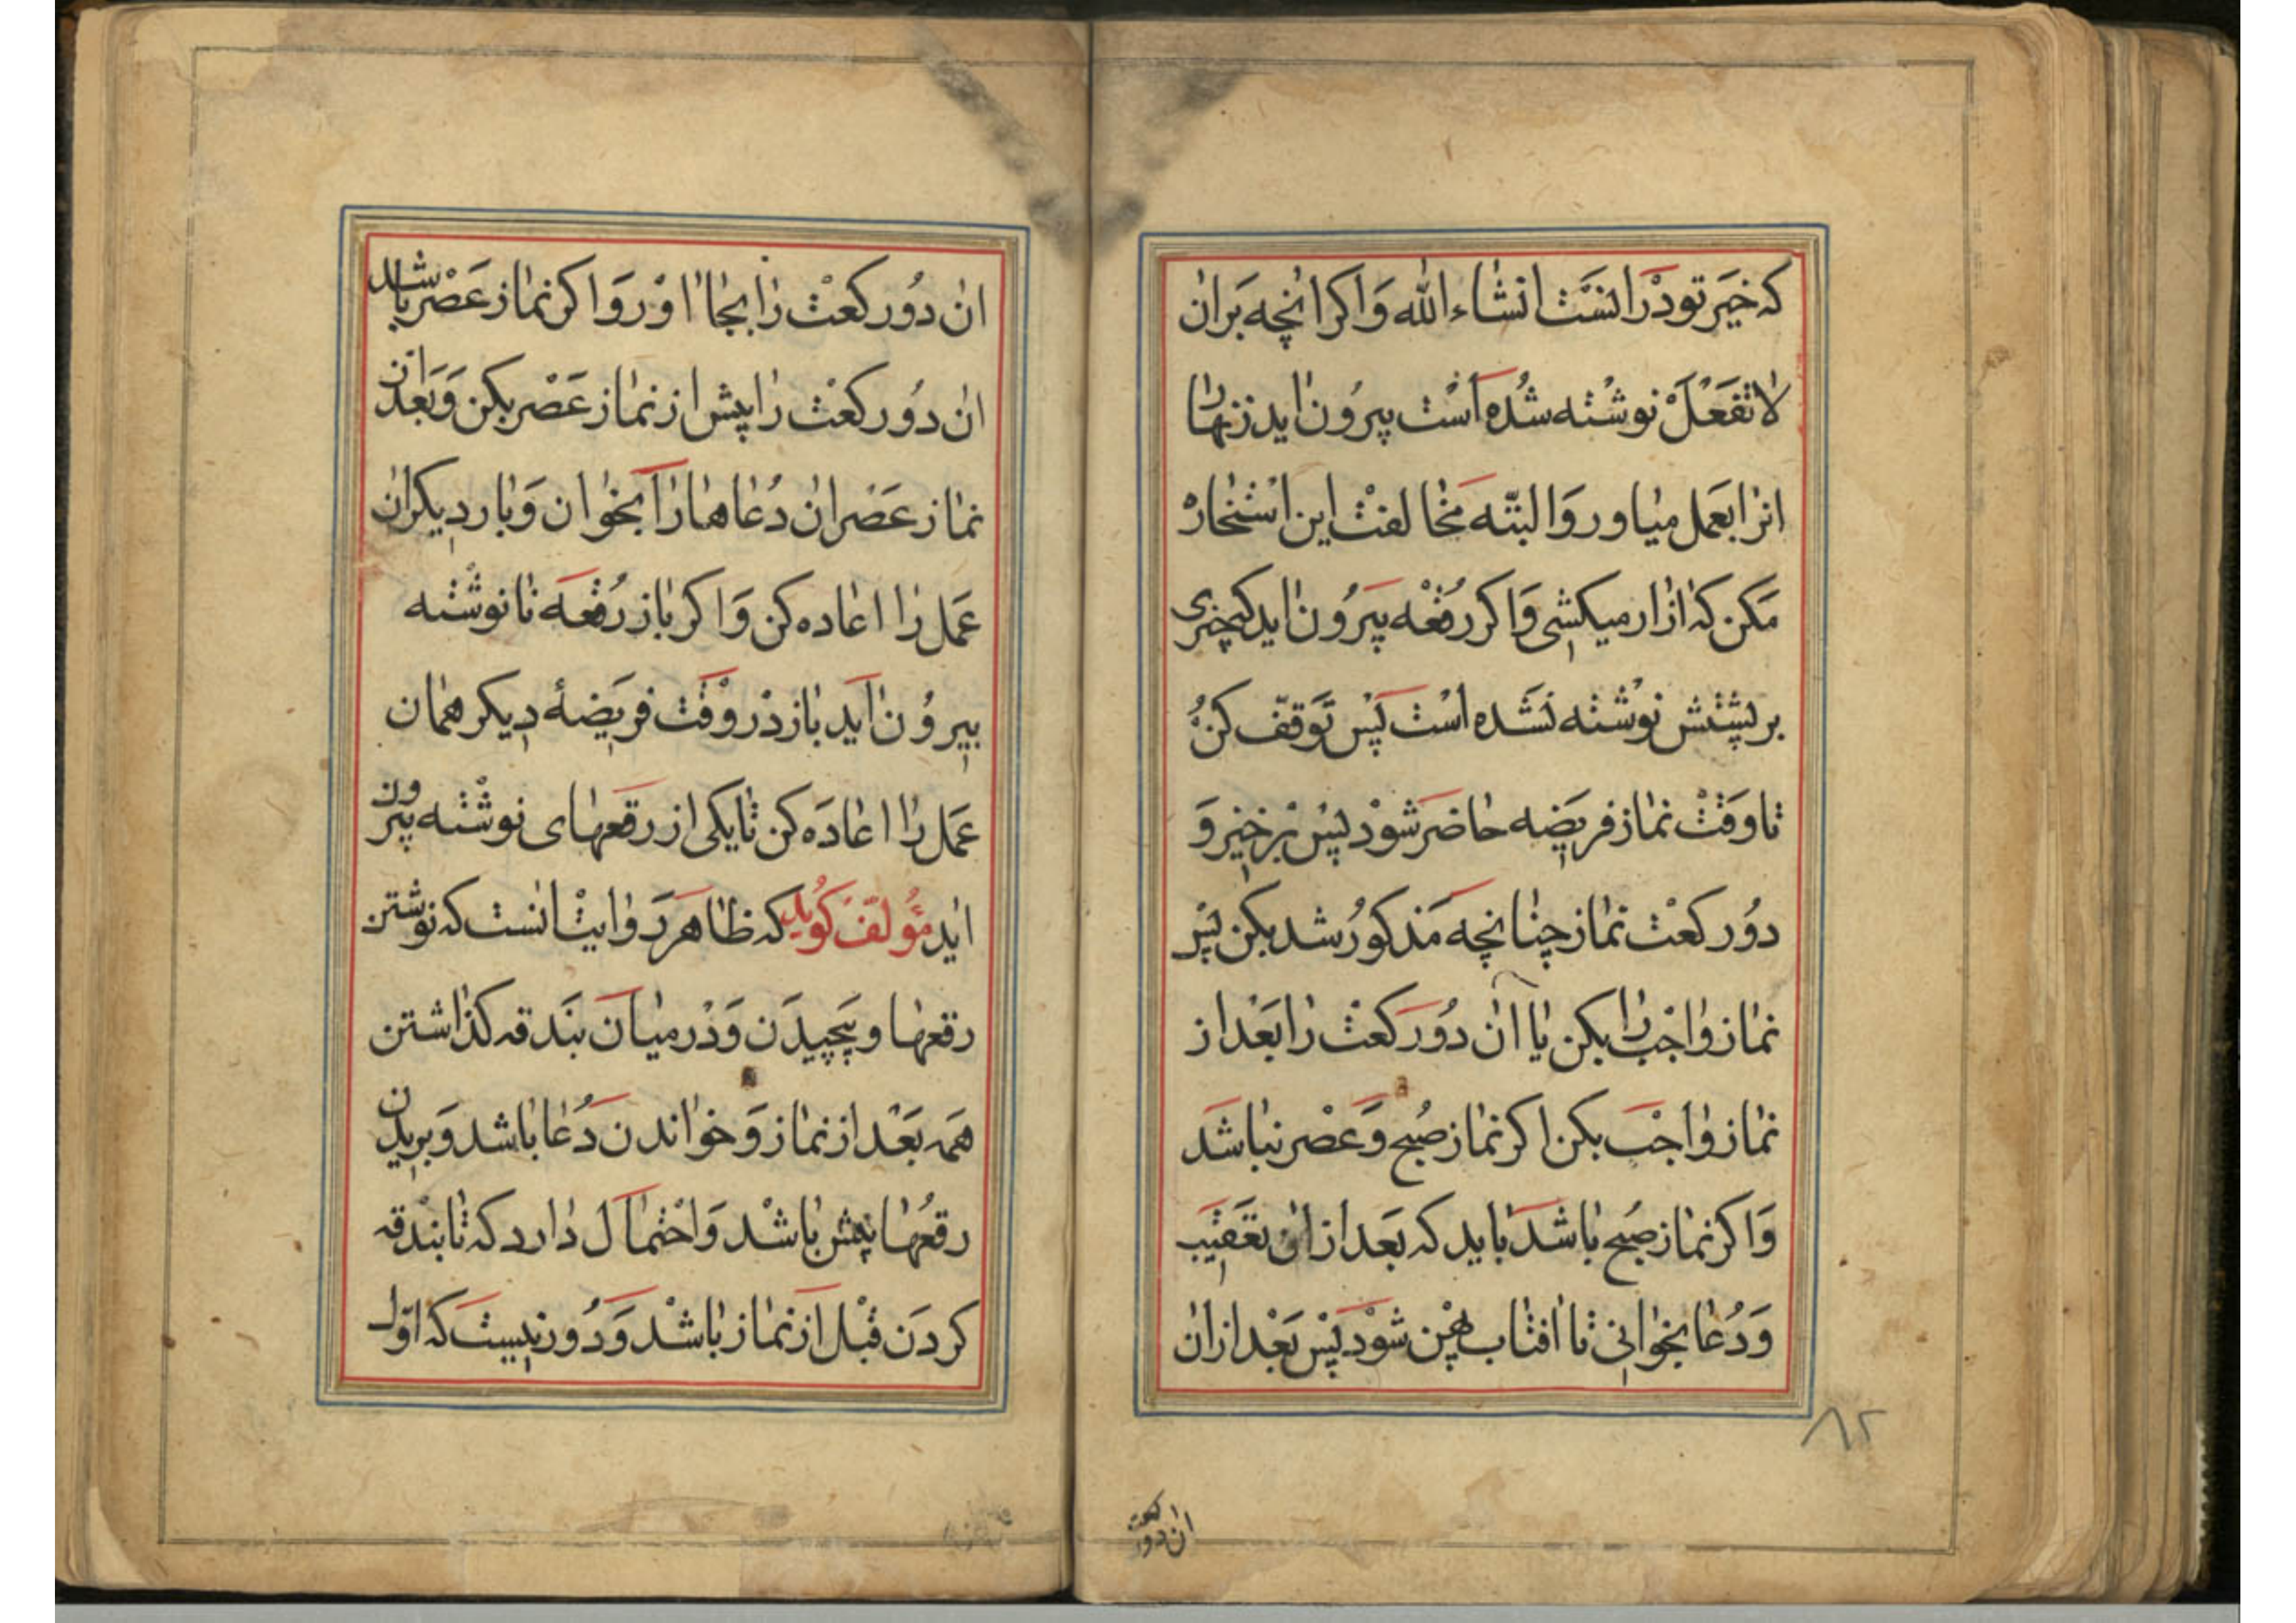 که خیر تو در انست انشاء الله و اکر انچه بران
لا تفعل نوشته شده است بیرون اید زنهار
انرا بعمل میاور و البته مخالفت این استخاره
مکن که ازار میکشی و اکر رقعه بیرون اید که چیزی
بر پشتش نوشته نشده است پس توقف کن
تا وقت نماز فریضه حاضر شود پس برخیز و
دو رکعت نماز چنانچه مذکور شد بکن پس
نماز واجب را بکن یا ان دو رکعت را بعد از
نماز واجب بکن اکر نماز صبح و عصر نباشد
و اکر نماز صبح باشد باید که بعد از ان تعقیب
و دعا بخوانی تا افتاب پهن شود پس بعد از ان
۸۲
ان دو رکعت
ان دو رکعت را بجا اور و اکر نماز عصر باشد
ان دو رکعت را پیش از نماز عصر بکن و بعد از
نماز عصر ان دعاها را بخوان و بار دیکر ان
عمل را اعاده کن و اکر باز رقعه نانوشته
بیرون اید باز در وقت فریضهٔ دیکر همان
عمل را اعاده کن تا یکی از رقعهای نوشته بیرون
اید مؤلف کوید که ظاهر روایت انست که نوشتن
رقعها و پیچیدن و در میان بندقه کذاشتن
همه بعد از نماز و خواندن دعا باشد و بریدن
رقعها پیش باشد و احتمال دارد که تا بندقه
کردن قبل از نماز باشد و دور نیست که اول